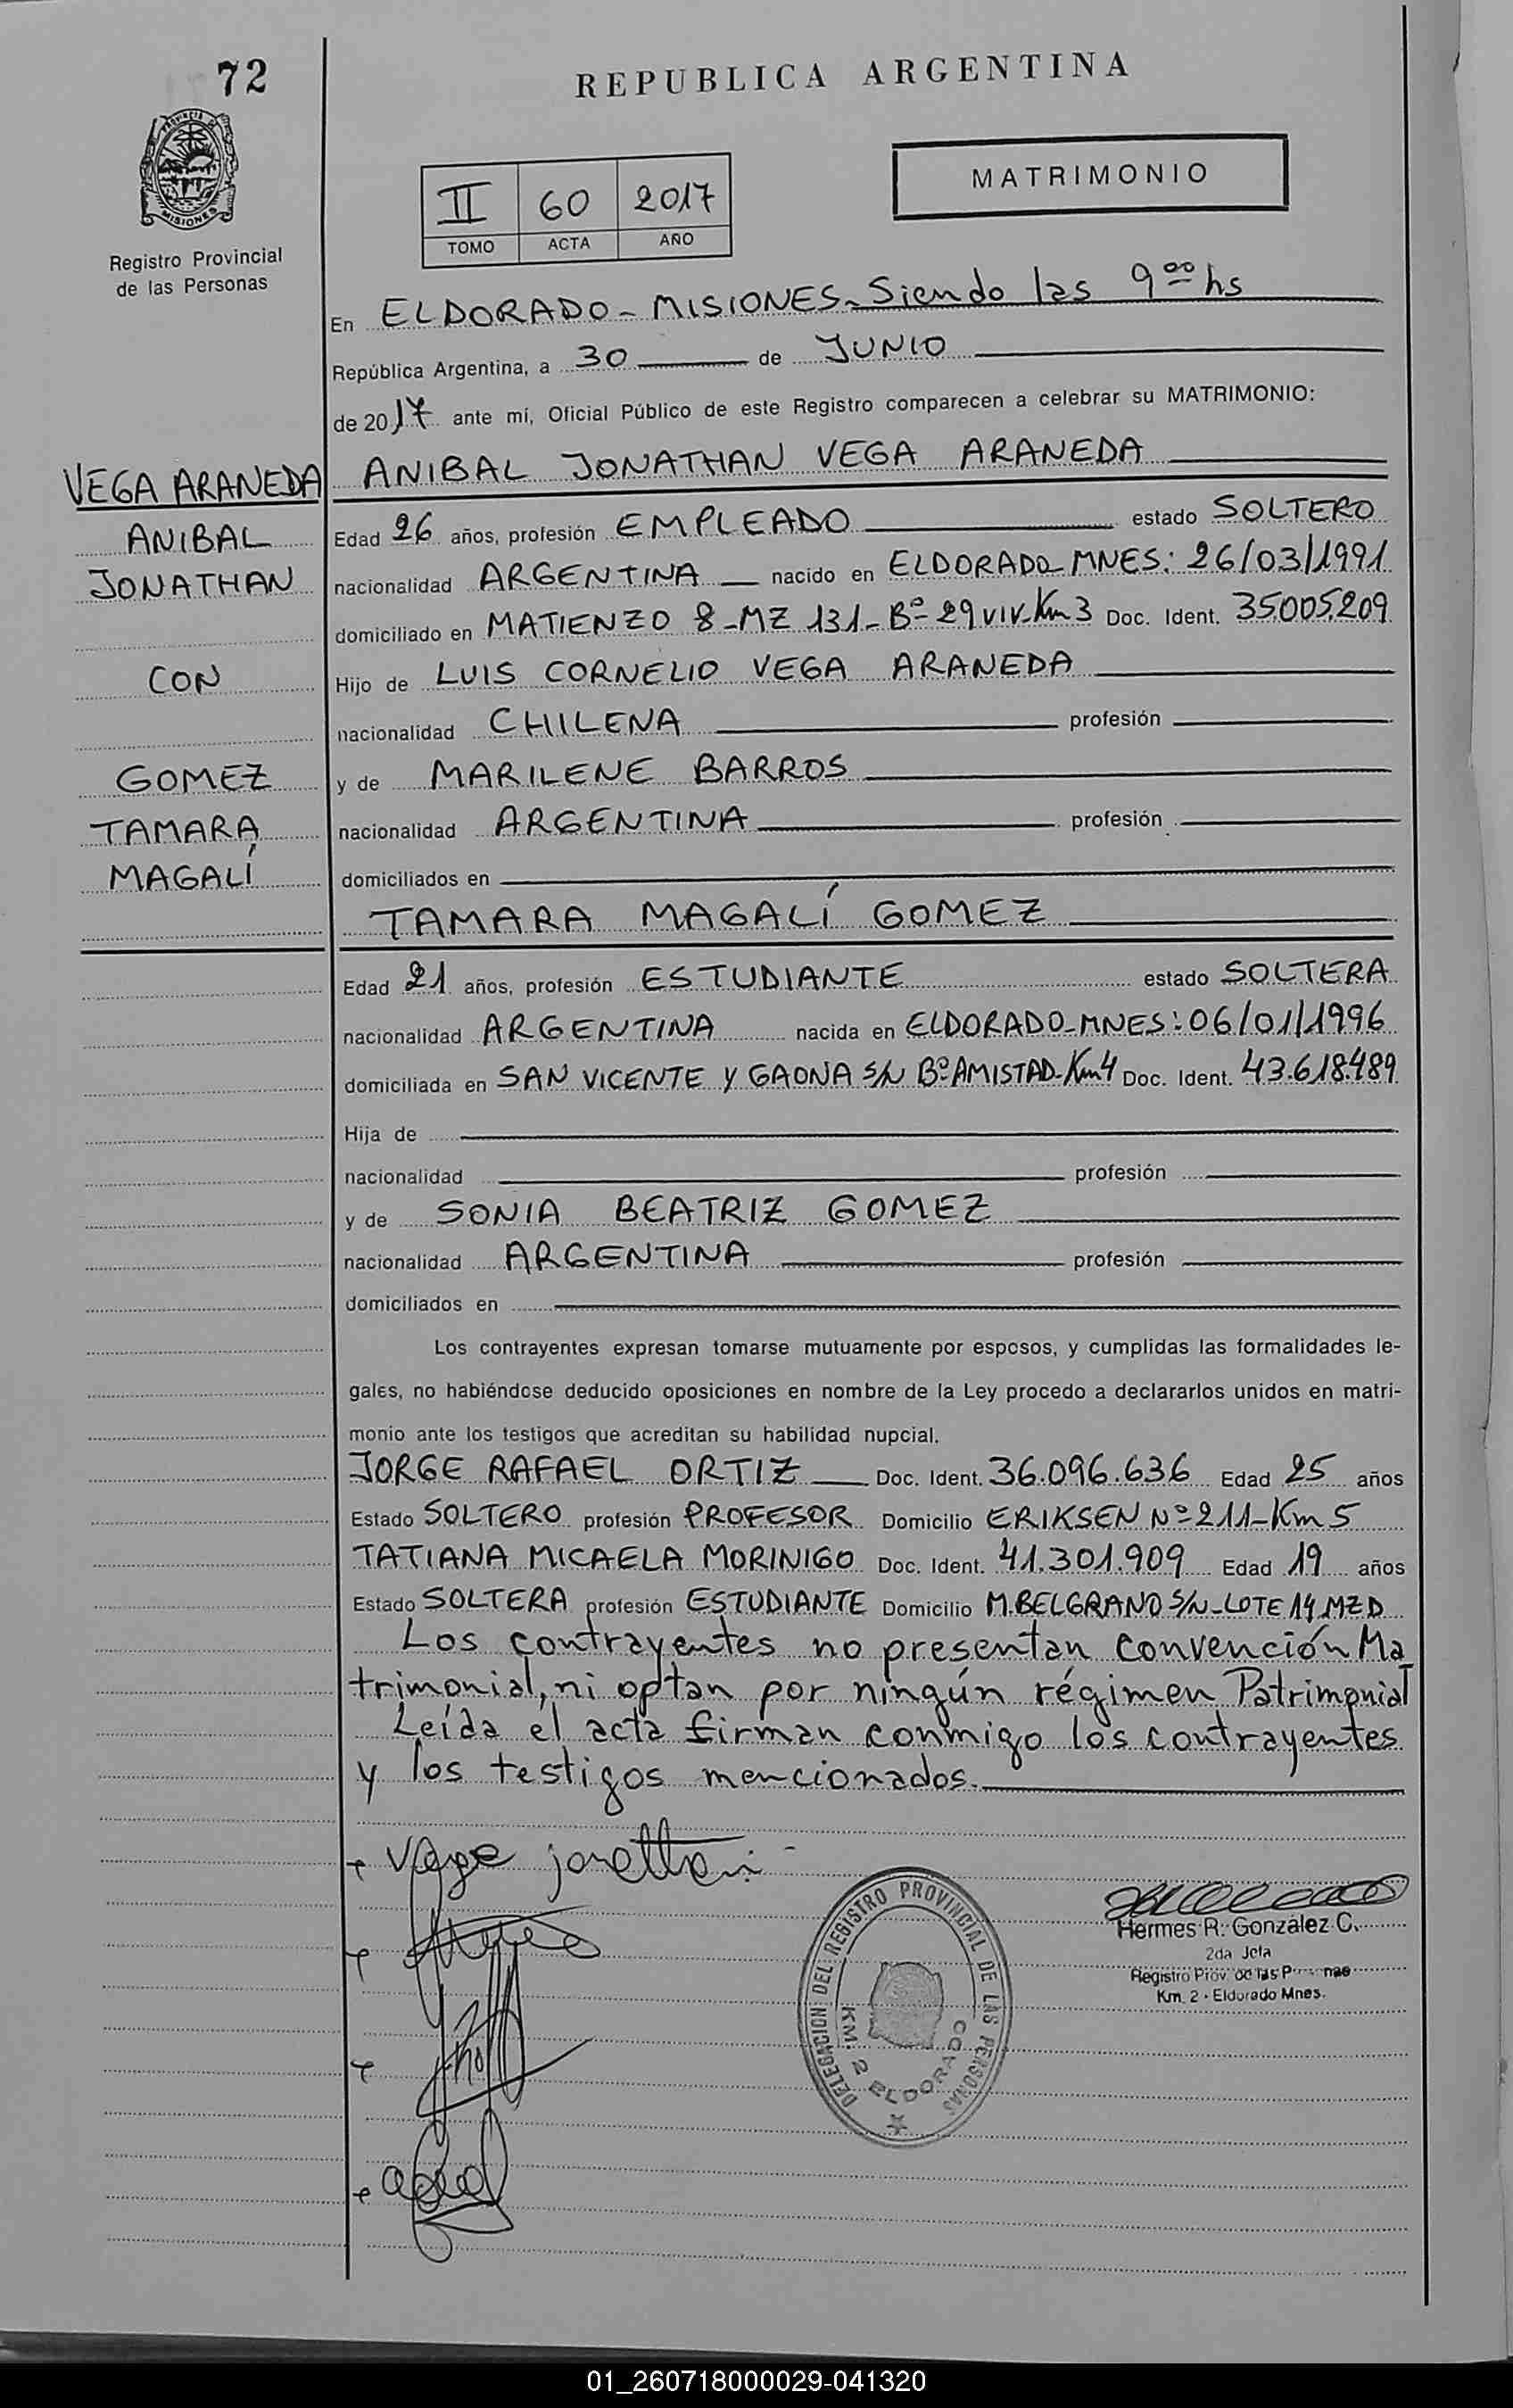 72
REPUBLICA ARGENTINA
MATRIMONIO
II 60 2017
TOMO ACTA AÑO
PROVINCIA DE
MISIONES
Registro Provincial
de las Personas
En ELDORADO - MISIONES - Siendo las 9 00 hs
República Argentina, a 30 de JUNIO
de 2017 ante mí, Oficial Público de este Registro comparecen a celebrar su MATRIMONIO:
VEGA ARANEDA
ANIBAL
JONATHAN
CON
GOMEZ
TAMARA
MAGALÍ
ANIBAL JONATHAN VEGA ARANEDA
Edad 26 años, profesión EMPLEADO estado SOLTERO
nacionalidad ARGENTINA nacido en ELDORADO MNES: 26/03/1991
domiciliado en MATIENZO 8-MZ 131-Bº 29 VIV-Km 3 Doc. Ident. 35.005.209
Hijo de LUIS CORNELIO VEGA ARANEDA
nacionalidad CHILENA profesión
y de MARILENE BARROS
nacionalidad ARGENTINA profesión
domiciliados en
TAMARA MAGALÍ GOMEZ
Edad 21 años, profesión ESTUDIANTE estado SOLTERA
nacionalidad ARGENTINA nacida en ELDORADO-MNES: 06/01/1996
domiciliada en SAN VICENTE Y GAONA S/N Bº AMISTAD-Km4 Doc. Ident. 43.618.489
Hija de
nacionalidad profesión
y de SONIA BEATRIZ GOMEZ
nacionalidad ARGENTINA profesión
domiciliados en
Los contrayentes expresan tomarse mutuamente por esposos, y cumplidas las formalidades le-
gales, no habiéndose deducido oposiciones en nombre de la Ley procedo a declararlos unidos en matri-
monio ante los testigos que acreditan su habilidad nupcial.
JORGE RAFAEL ORTIZ Doc. Ident. 36.096.636 Edad 25 años
Estado SOLTERO profesión PROFESOR Domicilio ERIKSEN Nº 211-Km 5
TATIANA MICAELA MORINIGO Doc. Ident. 41.301.909 Edad 19 años
Estado SOLTERA profesión ESTUDIANTE Domicilio M.BELGRANO S/N-LOTE 14 MZ D
Los contrayentes no presentan convención Ma
trimonial, ni optan por ningún régimen Patrimonial
Leída el acta firman conmigo los contrayentes
y los testigos mencionados.
Vega jonathan
DELEGACION DEL REGISTRO PROVINCIAL DE LAS PERSONAS
KM. 2 ELDORADO
Hermes R. González C.
2da Jefa
Registro Prov. de las
Km. 2 - Eldorado Mnes.
01_260718000029-041320